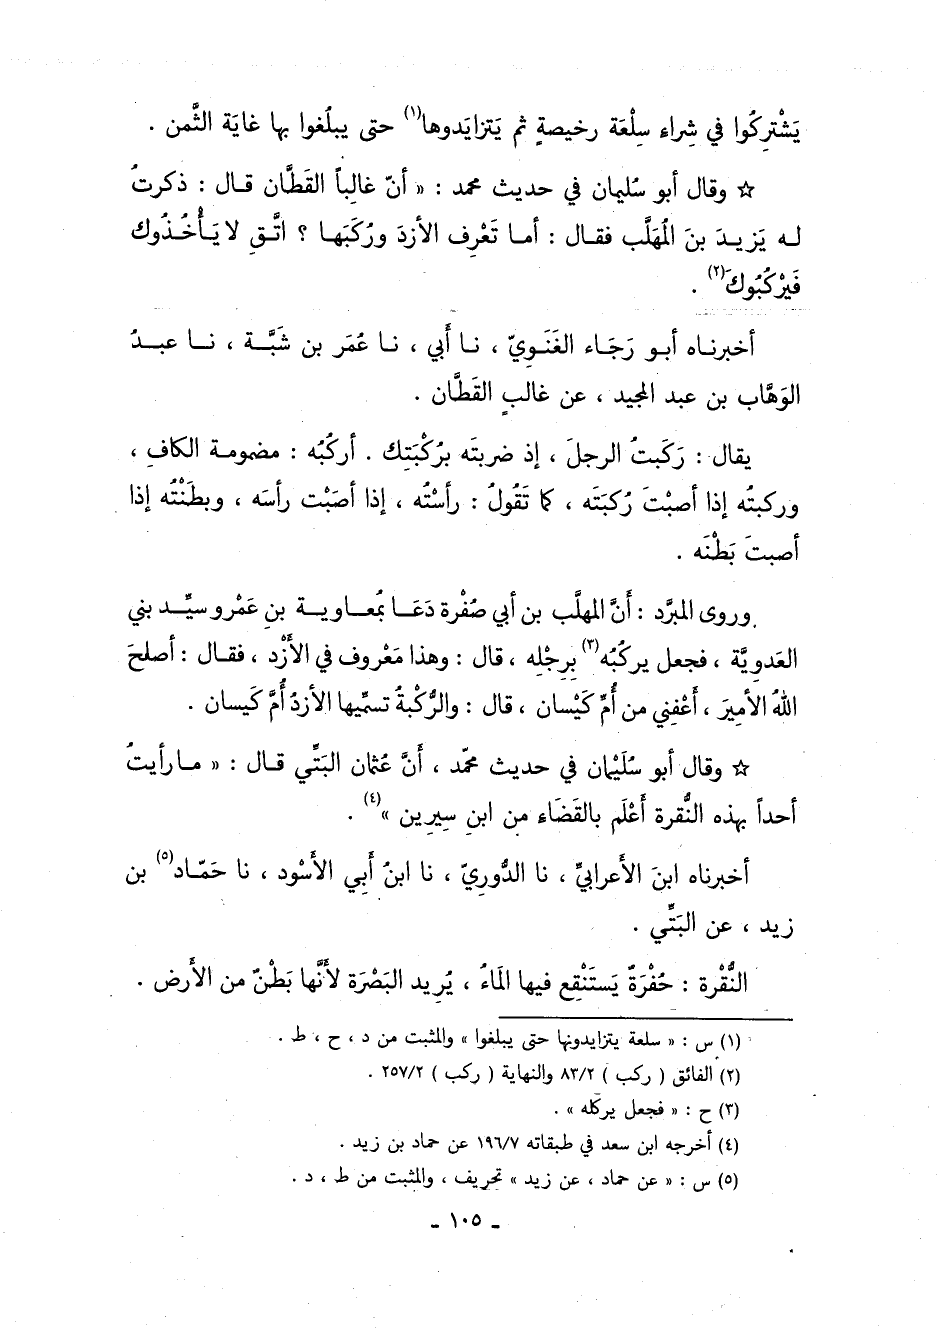 يَشْتركُوا في شِراء سِلْعَة رخيصةٍ ثم يَتزايَدوها(١) حتى يبلُغوا بها غايَة الثَّمن .
☆ وقال أبو سُليمان في حديث محمد : « أنّ غالباً القَطَّان قـال : ذكرتُ
لـه يَزيـدَ بنَ المُهلَّب فقـال : أمـا تَعْرِف الأزدَ ورُكَبَهـا ؟ اتَّـقِ لا يَـأْخُـذُوك
فَيَرْكُبُوكَ(٢) .
أخبرنـاه أبـو رَجَـاء الغَنَـويّ ، نـا أَبي ، نـا عُمَر بن شَبَّـة ، نـا عبـدُ
الوَهَّاب بن عبد المجيد ، عن غالبٍ القَطَّان .
يقال : رَكَبتُ الرجلَ ، إذ ضربتَه برُكْبَتِك . أركُبُه : مضمومة الكافِ ،
وركبتُه إذا أصبْتَ رُكبَتَه ، كما تَقُولُ : رأسْتُه ، إذا أصَبْت رأسَه ، وبطَنْتُه إذا
أصبتَ بَطْنَه .
وروى المبرَّد : أنَّ المهلَّب بن أبي صُفْرة دَعَـا بمُعـاويـة بنِ عَمْرو سيِّـد بني
العَدويَّة ، فجعل يركُبُه(٣) بِرجْلِه ، قال : وهذا مَعْروف في الأَزْد ، فقـال : أصلحَ
اللهُ الأميرَ ، أَعْفِني من أُمِّ كَيْسان ، قال : والرُّكْبةُ تسمِّيها الأزدُ أُمَّ كَيسان .
☆ وقال أبو سُلَيْمان في حديث محمّد ، أَنَّ عُثمان البَتِّي قـال : « مـا رأيتُ
أحداً بهذه النُّقرة أَعْلَم بالقَضَاء من ابنِ سِيرين »(٤) .
أخبرناه ابنَ الأعرابيِّ ، نا الدُّوريّ ، نا ابنُ أَبي الأَسْود ، نا حَمّـاد(٥) بن
زيد ، عن البَتِّي .
النُّقْرة : حُفْرَةٌ يَستَنْقِع فيها المَاءُ ، يُريد البَصْرَة لأَنَّها بَطْنٌ من الأَرض .
(١) س : « سلعة يتزايدونها حتى يبلغوا » والمثبت من د ، ح ، ط .
(٢) الفائق ( ركب ) ٨٣/٢ والنهاية ( ركب ) ٢٥٧/٢ .
(٣) ح : « فجعل يركله » .
(٤) أخرجه ابن سعد في طبقاته ١٩٦/٧ عن حماد بن زيد .
(٥) س : « عن حماد ، عن زيد » تحريف ، والمثبت من ط ، د .
ـ ١٠٥ ـ